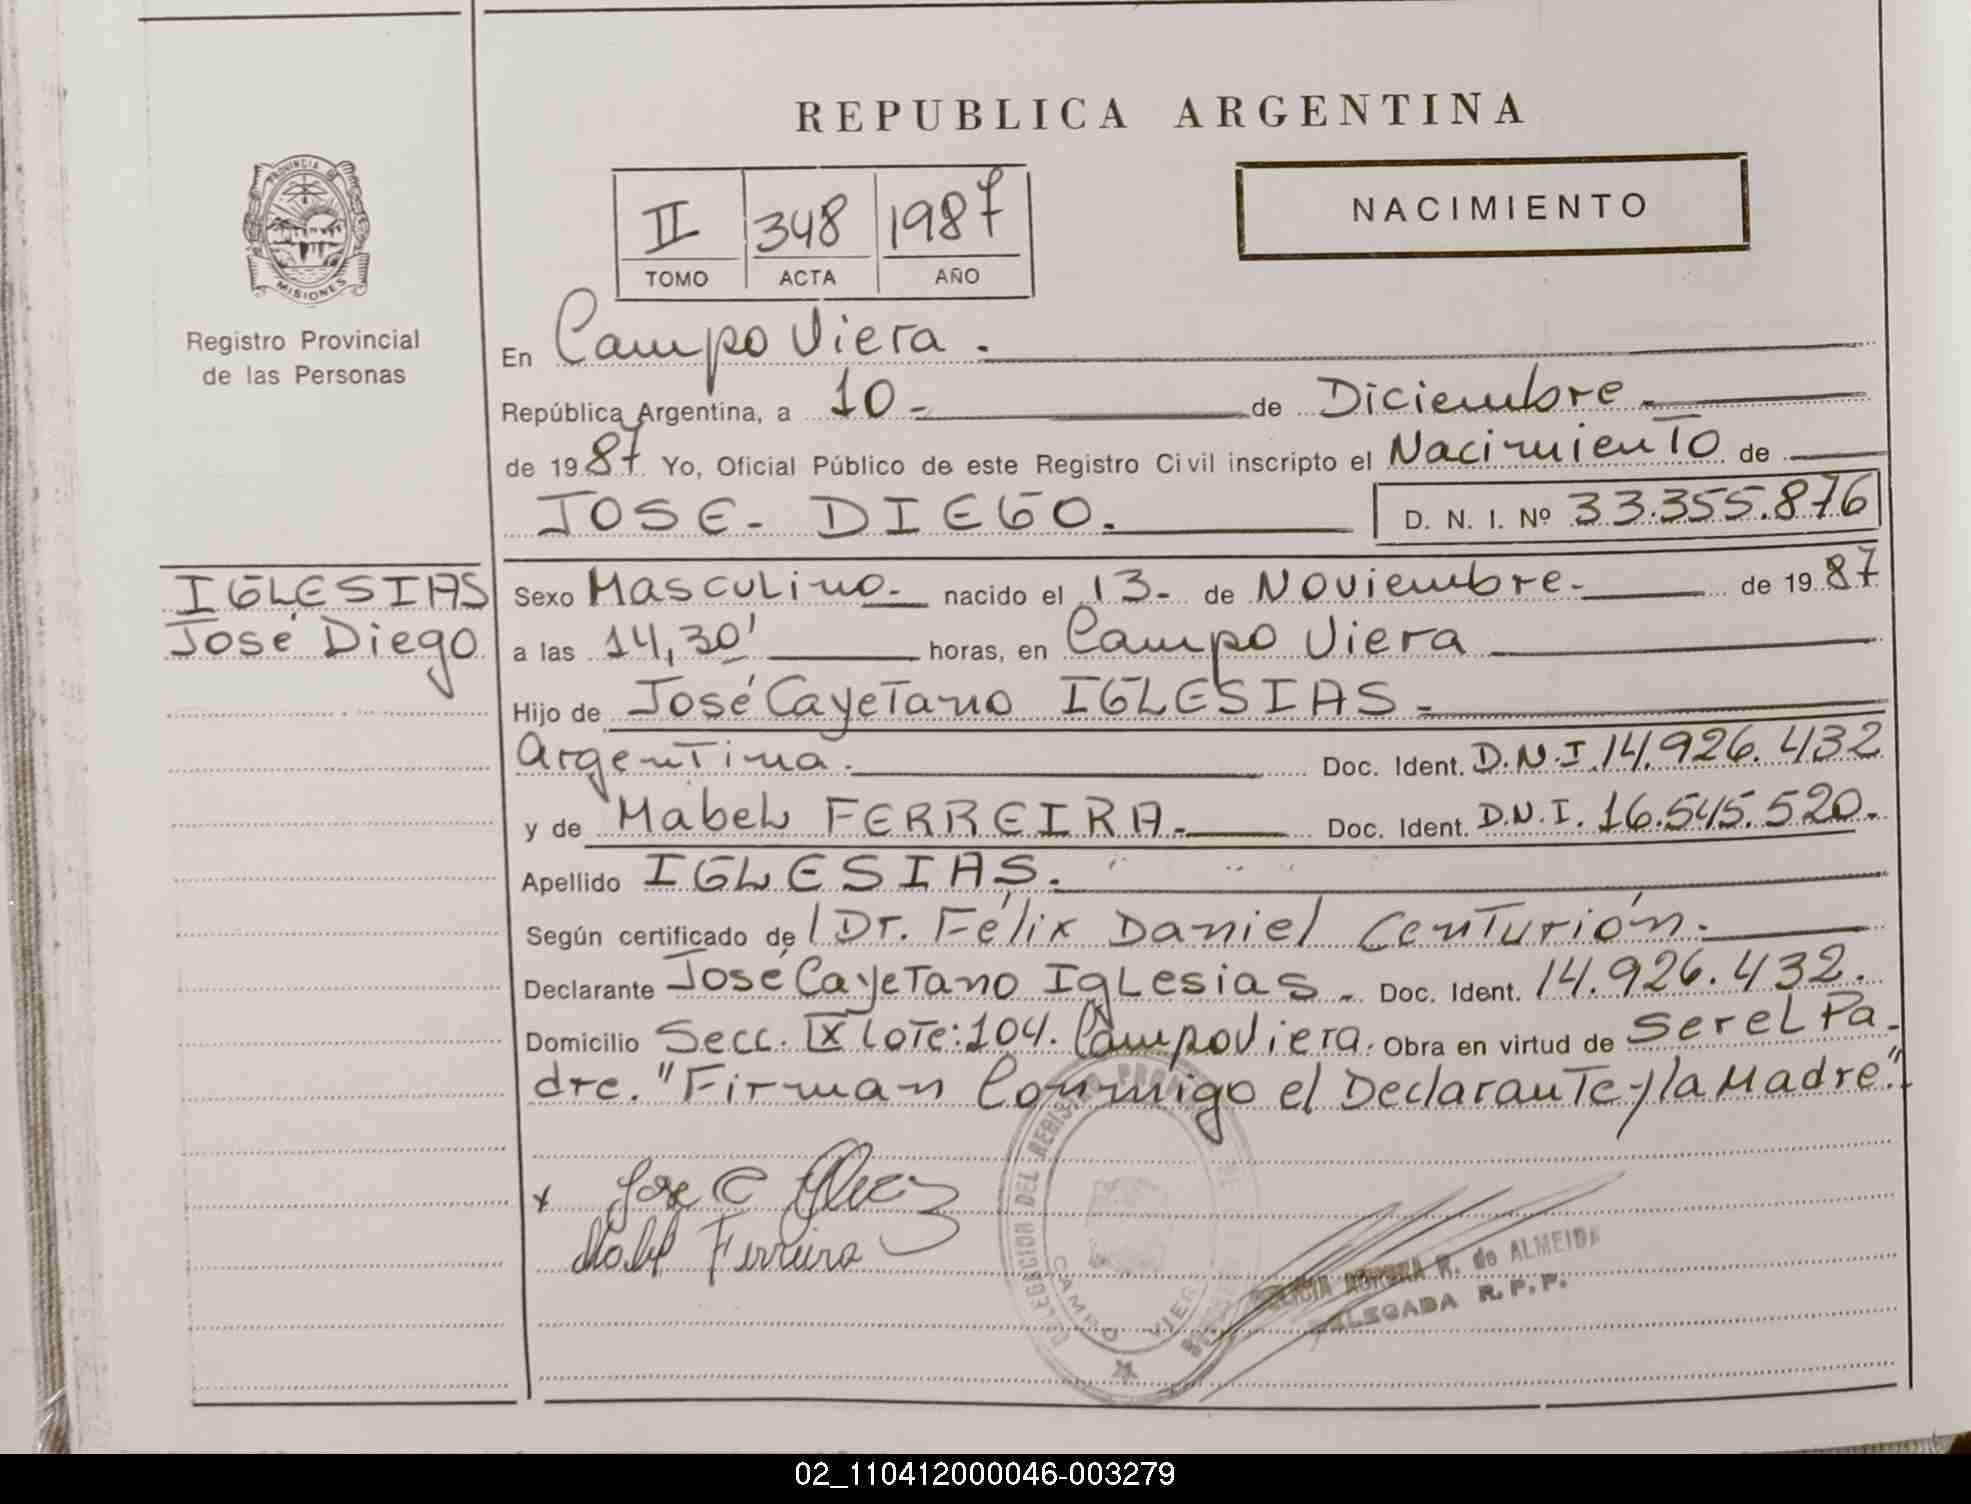 REPUBLICA ARGENTINA
PROVINCIA
MISIONES
Registro Provincial
de las Personas
II 348 1987
TOMO ACTA AÑO
NACIMIENTO
En Campo Viera.
República Argentina, a 10 de Diciembre
de 1987 Yo, Oficial Público de este Registro Civil inscripto el Nacimiento de
JOSE - DIEGO. D. N. I. Nº 33.355.876
IGLESIAS
José Diego
Sexo Masculino. nacido el 13 - de Noviembre - de 1987
a las 14,30' horas, en Campo Viera
Hijo de José Cayetano IGLESIAS -
Argentina. Doc. Ident. D.N.I. 14.926.432
y de Mabel FERREIRA. Doc. Ident. D.N.I. 16.545.520.
Apellido IGLESIAS.
Según certificado del Dr. Félix Daniel Centurión.
Declarante José Cayetano Iglesias. Doc. Ident. 14.926.432.
Domicilio Secc. IX Lote: 104. Campo Viera. Obra en virtud de Ser el Pa-
dre. "Firman Conmigo el Declarante y la Madre".
x Jose C
Mabel Ferreira
DELEGACION DEL REGISTRO
CAMPO VIERA
AURORA R. de ALMEIDA
DELEGADA R.P.P.
02_110412000046-003279